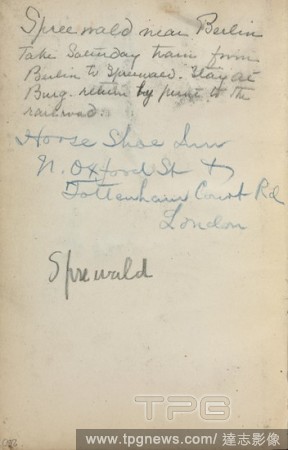 Spree wald near Berlin
Take Saturday train from
Berlin to Spreewald. Stay at
Burg. return by punt to the
railroad.
Horse Shoe Inn
N. Oxford St &
Tottenham Court Rd
London
Sprewald
TPG
www.tpgnews.com/ 達志影像